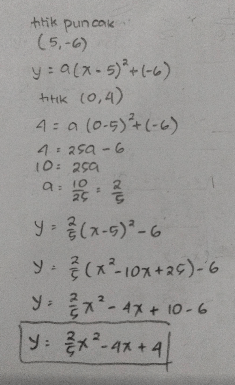 titik puncak
(5,-6)
y = a(x-5)²+(-6)
titik (0,4)
4 = a (0-5)²+(-6)
4 = 25a - 6
10 = 25a
a = 10/25 = 2/5
y = 2/5(x-5)²-6
y = 2/5(x²-10x+25)-6
y = 2/5x²-4x+10-6
y = 2/5x²-4x+4